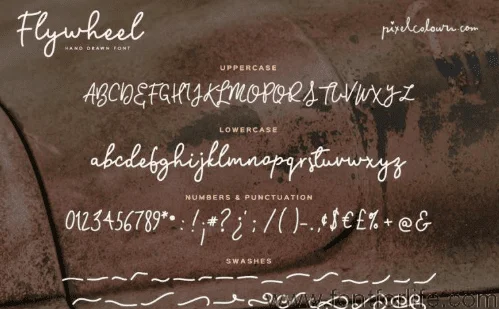 Flywheel
HAND DRAWN FONT
pixelcolours.com
UPPERCASE
ABCDEFGHIJKLMNOPQRSTUVWXYZ
LOWERCASE
abcdefghijklmnopqrstuvwxyz
NUMBERS & PUNCTUATION
0123456789*•:!¡#?¿;/()-.,¢$€£%+@&
SWASHES